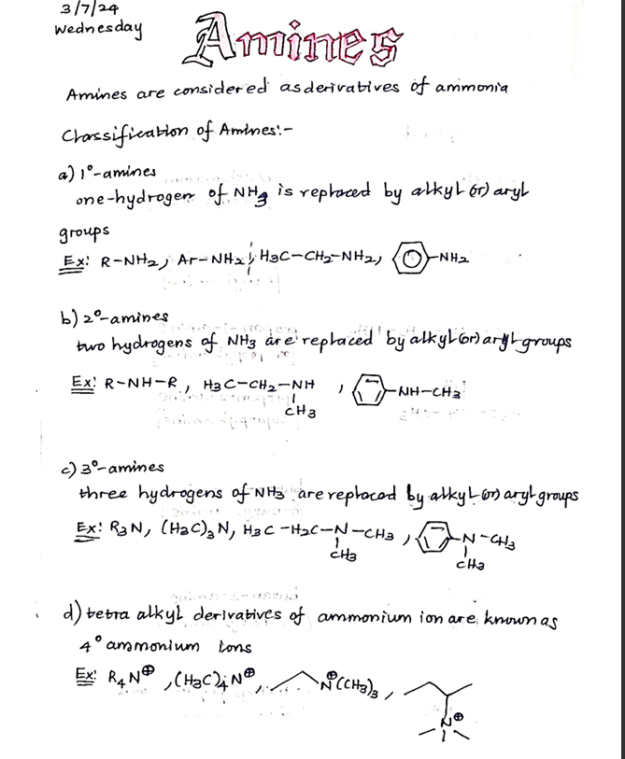 3/7/24
Wednesday
Amines
Amines are considered as derivatives of ammonia
Classification of Amines:-
a) 1°-amines
one-hydrogen of NH3 is replaced by alkyl (or) aryl
groups
Ex: R-NH2, Ar-NH2, H3C-CH2-NH2, -NH2
b) 2°-amines
two hydrogens of NH3 are replaced by alkyl (or) aryl groups
Ex: R-NH-R, H3C-CH2-NH, -NH-CH3
CH3
c) 3°-amines
three hydrogens of NH3 are replaced by alkyl (or) aryl groups
Ex: R3N, (H3C)3N, H3C-H2C-N-CH3, -N-CH3
CH3 CH3
d) tetra alkyl derivatives of ammonium ion are known as
4° ammonium ions
Ex: R4N⊕, (H3C)4N⊕, N⊕(CH3)3,
N⊕